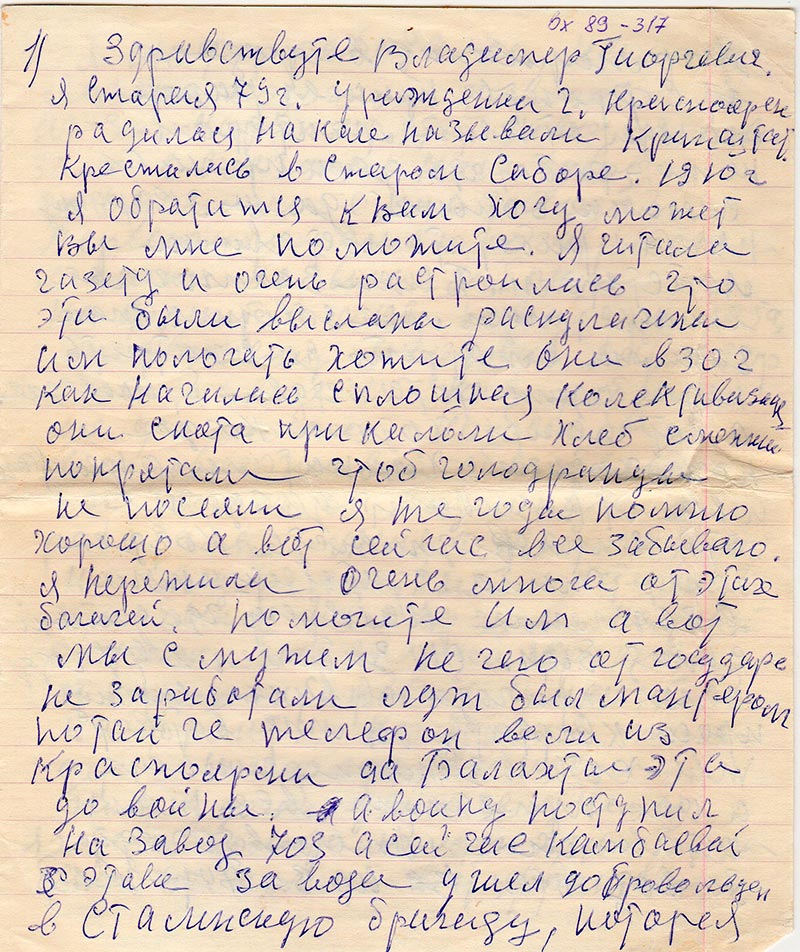 вх 89-317
1) Здравствуте Владимер Гиоргевич.
я старая 79 г. уражденка г. Красноярск
радилась на как называли Кранштат.
крестилась в старом саборе. 1910 г
я обратится к вам хочу может
вы мне поможите. Я читала
газету и очень растроилась что
эти были высланы раскулачены
им помогать хотите они в 30 г
как началась сплошная колективизац
они скота прикалоли хлеб
попрятали чтоб голодранцы
не посеяли я те года помню
хорошо а вот сейчас все забываю.
я пережила очень многа от этих
багачей. помочите им а вот
мы с мужем не чего от государс
не заработали муж был мантером
по тайге телефон вели из
красноярска да Балахты эта
до войны. а войну поступил
на завод 703 а сейчас Камбаевай
с этава завода ушел добровольцем
в Сталинскую бригаду, которая